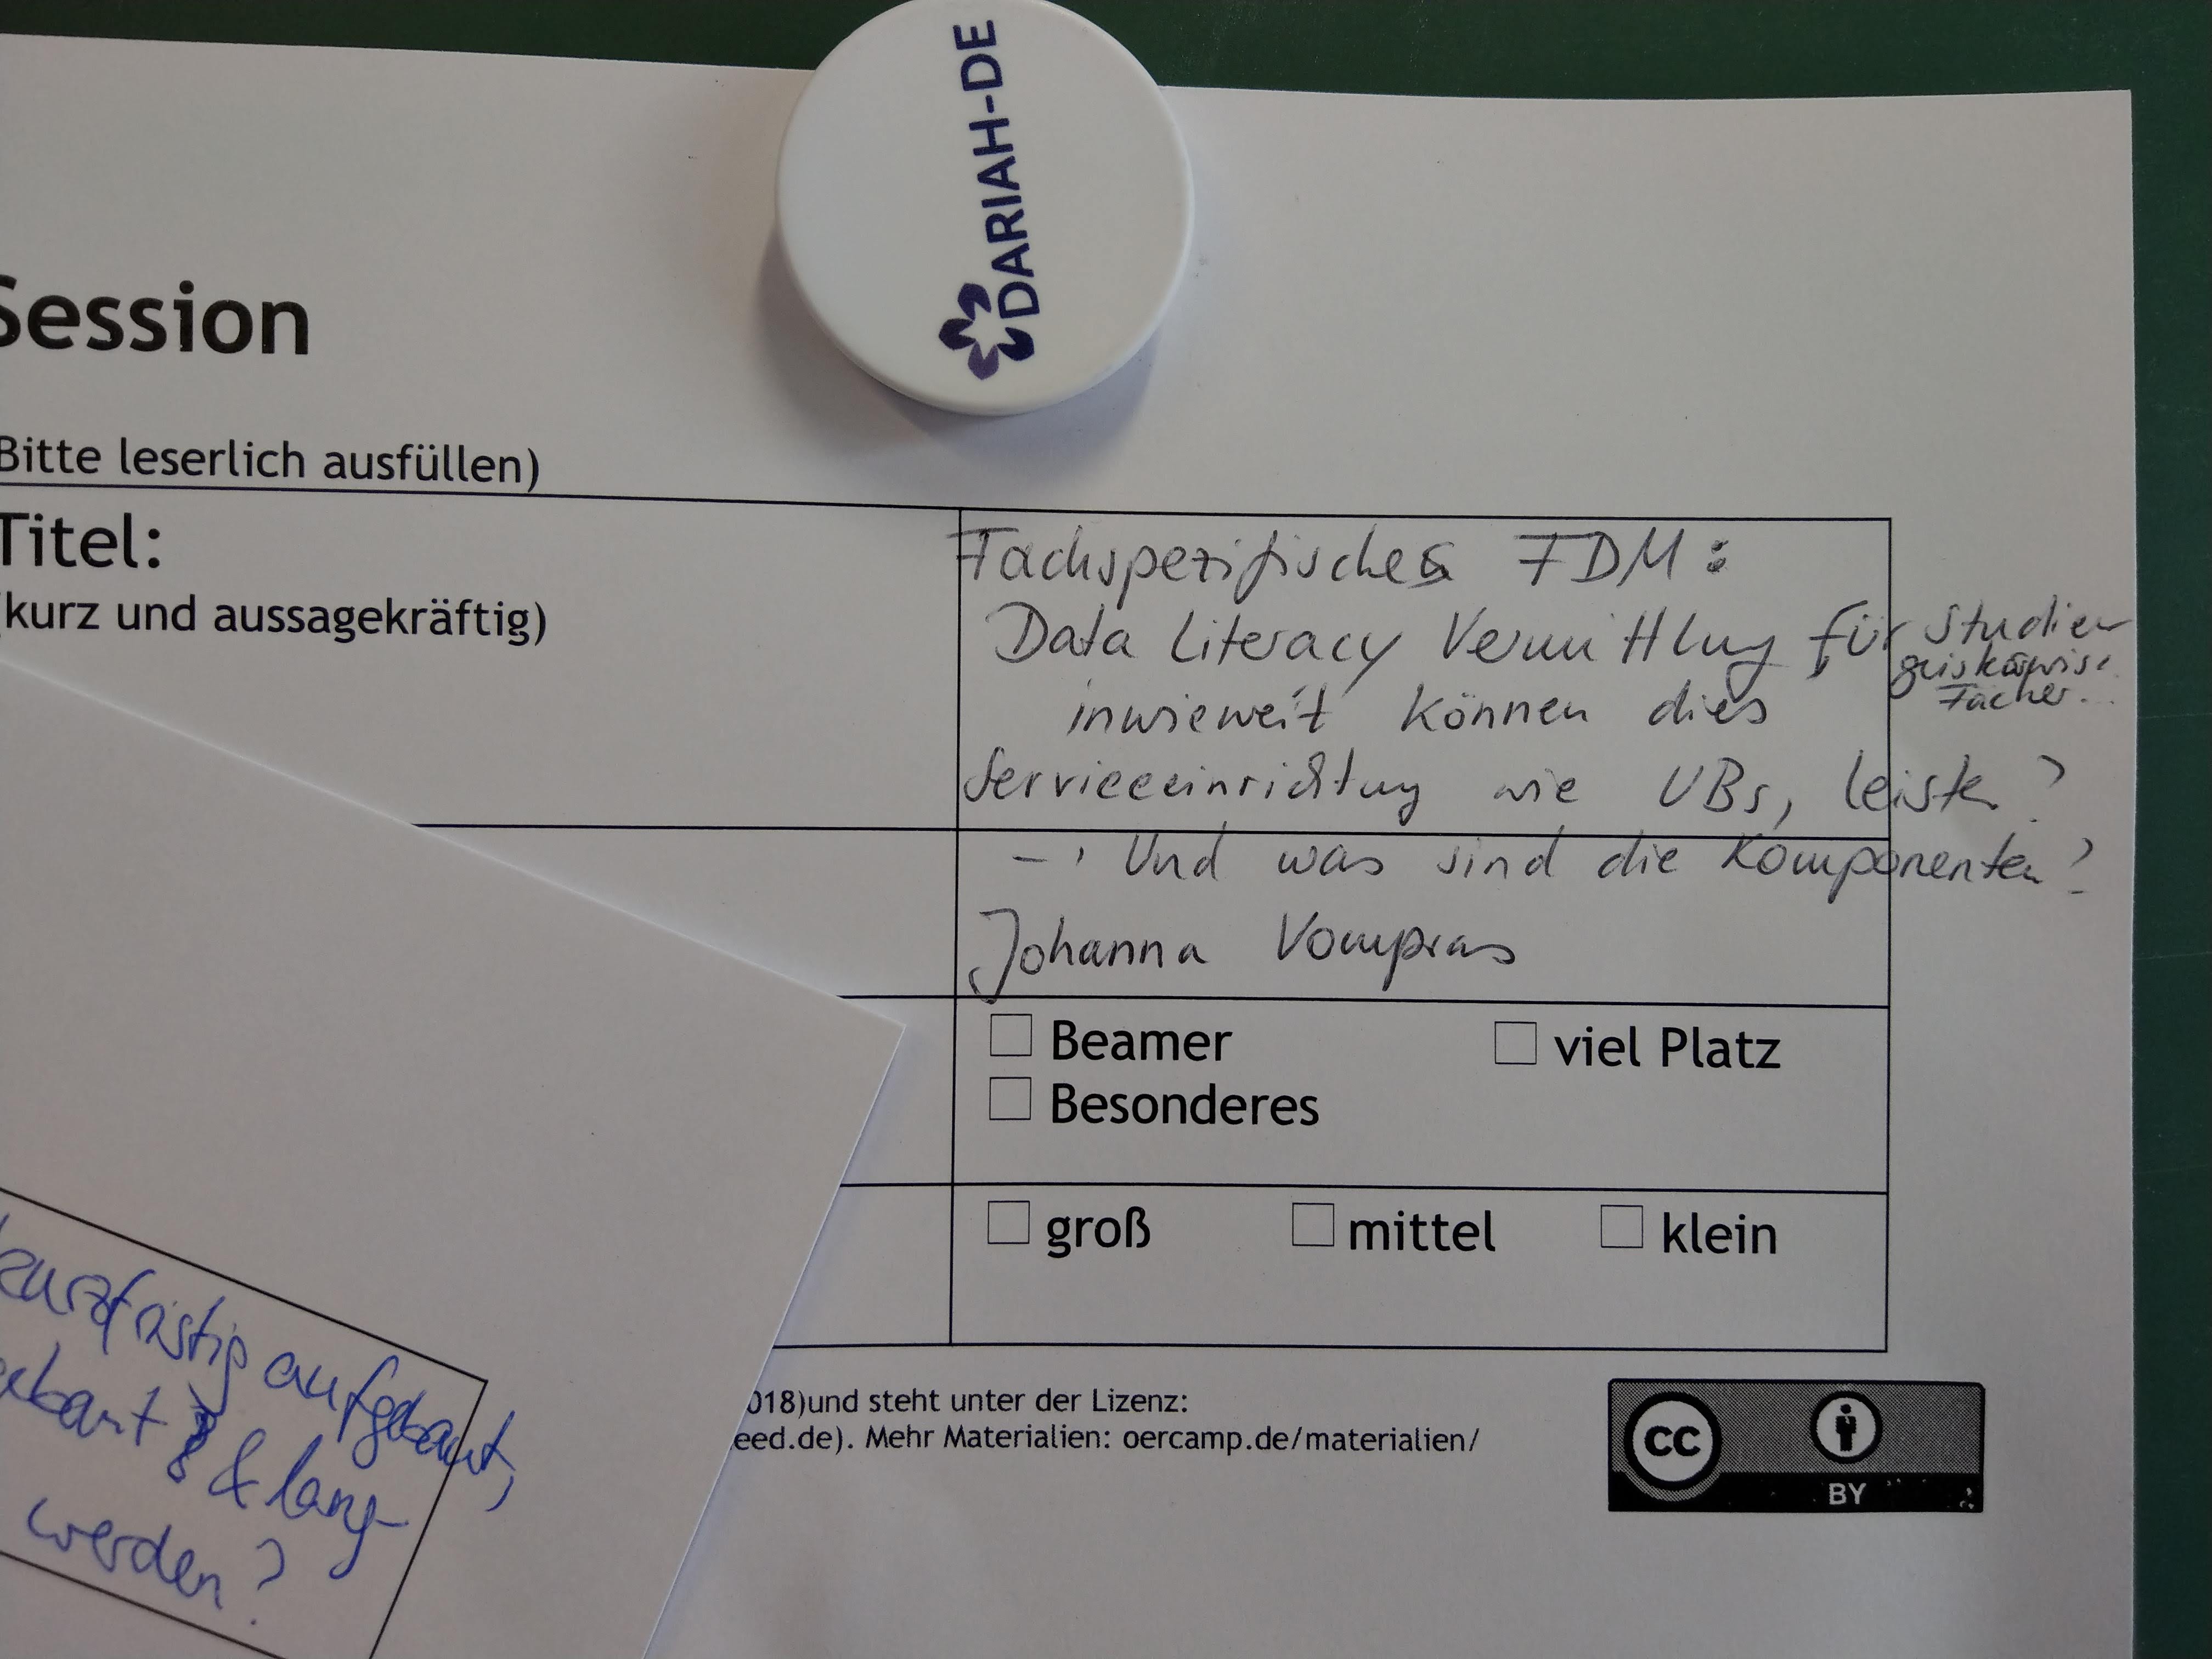 DARIAH-DE
Session
Bitte leserlich ausfüllen)
Titel:
(kurz und aussagekräftig)
Fachspezifisches FDM:
Data Literacy Vermittlung für Studier
geisteswiss.
Fächer...
inwieweit können dies
Serviceeinrichtung wie UBs, leisten?
-, Und was sind die Komponenten?
Johanna Vompras
Beamer viel Platz
Besonderes
groß mittel klein
018)und steht unter der Lizenz:
eed.de). Mehr Materialien: oercamp.de/materialien/
CC BY
kurzfristig aufgebaut,
& lang-
werden?